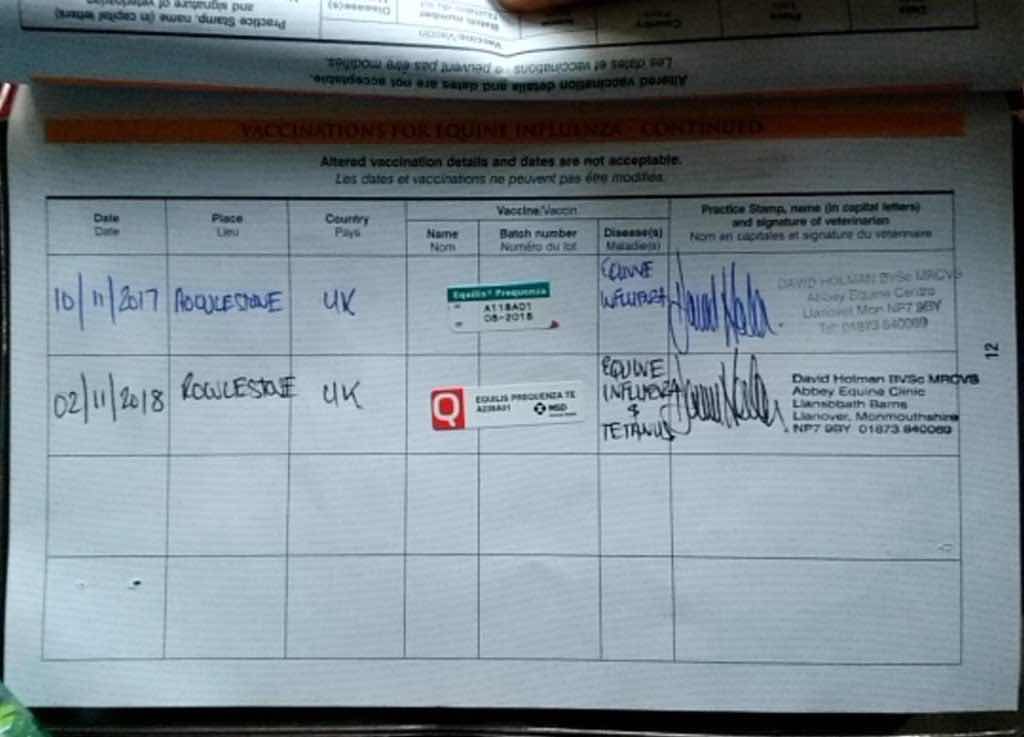 Practice Stamp, name (in capital letters)
and signature of veterinarian
Disease(s)
Batch number
Vaccine/Vaccin
Country
Place
Date
Les dates et vaccinations ne peuvent pas être modifiées.
Altered vaccination details and dates are not acceptable.
VACCINATIONS FOR EQUINE INFLUENZA - CONTINUED
Altered vaccination details and dates are not acceptable.
Les dates et vaccinations ne peuvent pas être modifiées.
Date
Date
Place
Lieu
Country
Pays
Vaccine/Vaccin
Name
Nom
Batch number
Numéro du lot
Disease(s)
Maladie(s)
Practice Stamp, name (in capital letters)
and signature of veterinarian
Nom en capitales et signature du vétérinaire
10/11/2017
ROGGLESTONE
UK
Equilis® Prequenza
A118A01
08-2018
EQUINE
INFLUENZA
DAVID HOLMAN BVSc MRCVS
Abbey Equine Centre
Llanover Mon NP7 9BY
Tel: 01873 840069
02/11/2018
UK
EQUILIS PREQUENZA TE
A238A01
MSD
EQUINE
INFLUENZA
&
TETANUS
David Holman BVSc MRCVS
Abbey Equine Clinic
Llansabbath Barns
Llanover, Monmouthshire
NP7 9BY 01873 840069
12